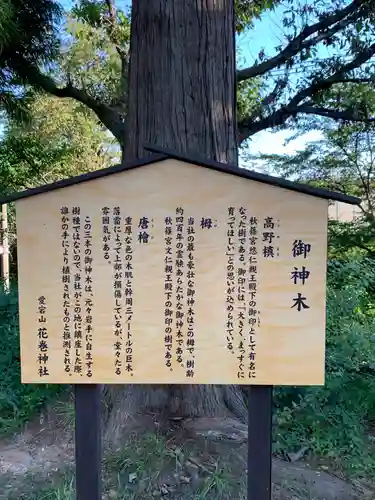 御神木
高野槙
秋篠宮悠仁親王殿下の御印として有名に
なった木である。御印には、「大きく、まっすぐに
育ってほしい」との思いが込められている。
栂
当社の最も豪壮な御神木はこの栂で、樹齢
約四百年の霊験あらたかな御神木である。
秋篠宮文仁親王殿下の御印の樹である。
唐檜
重厚なあの木肌と幹周三メートルの巨木。
落雷によって上部が損傷しているが、堂々たる
雰囲気がある。
この三本の御神木は、元々岩手に自生する
樹種ではないので、当社がこの地に鎮座した際、
誰かの手により植樹されたものと推測される。
愛宕山 花巻神社